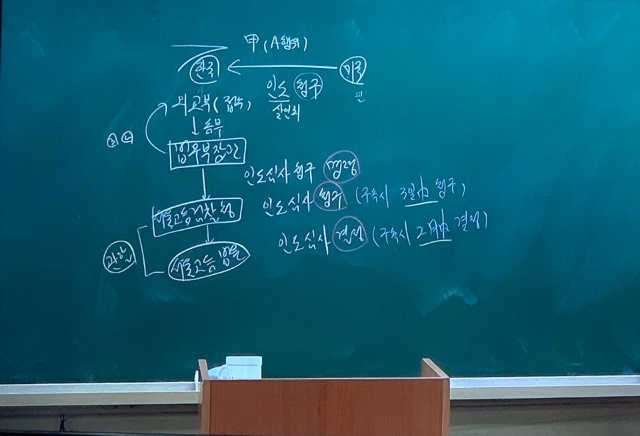 甲 (A범죄)
한국 ← 미국
인도 청구
살인죄
외교부 (접수)
↓ 송부
법무부장관
인도심사청구 명령
서울고등검찰청
인도심사 청구 (구속시 3일內 청구)
관할
서울고등법원
인도심사 결정 (구속시 2月內 결정)